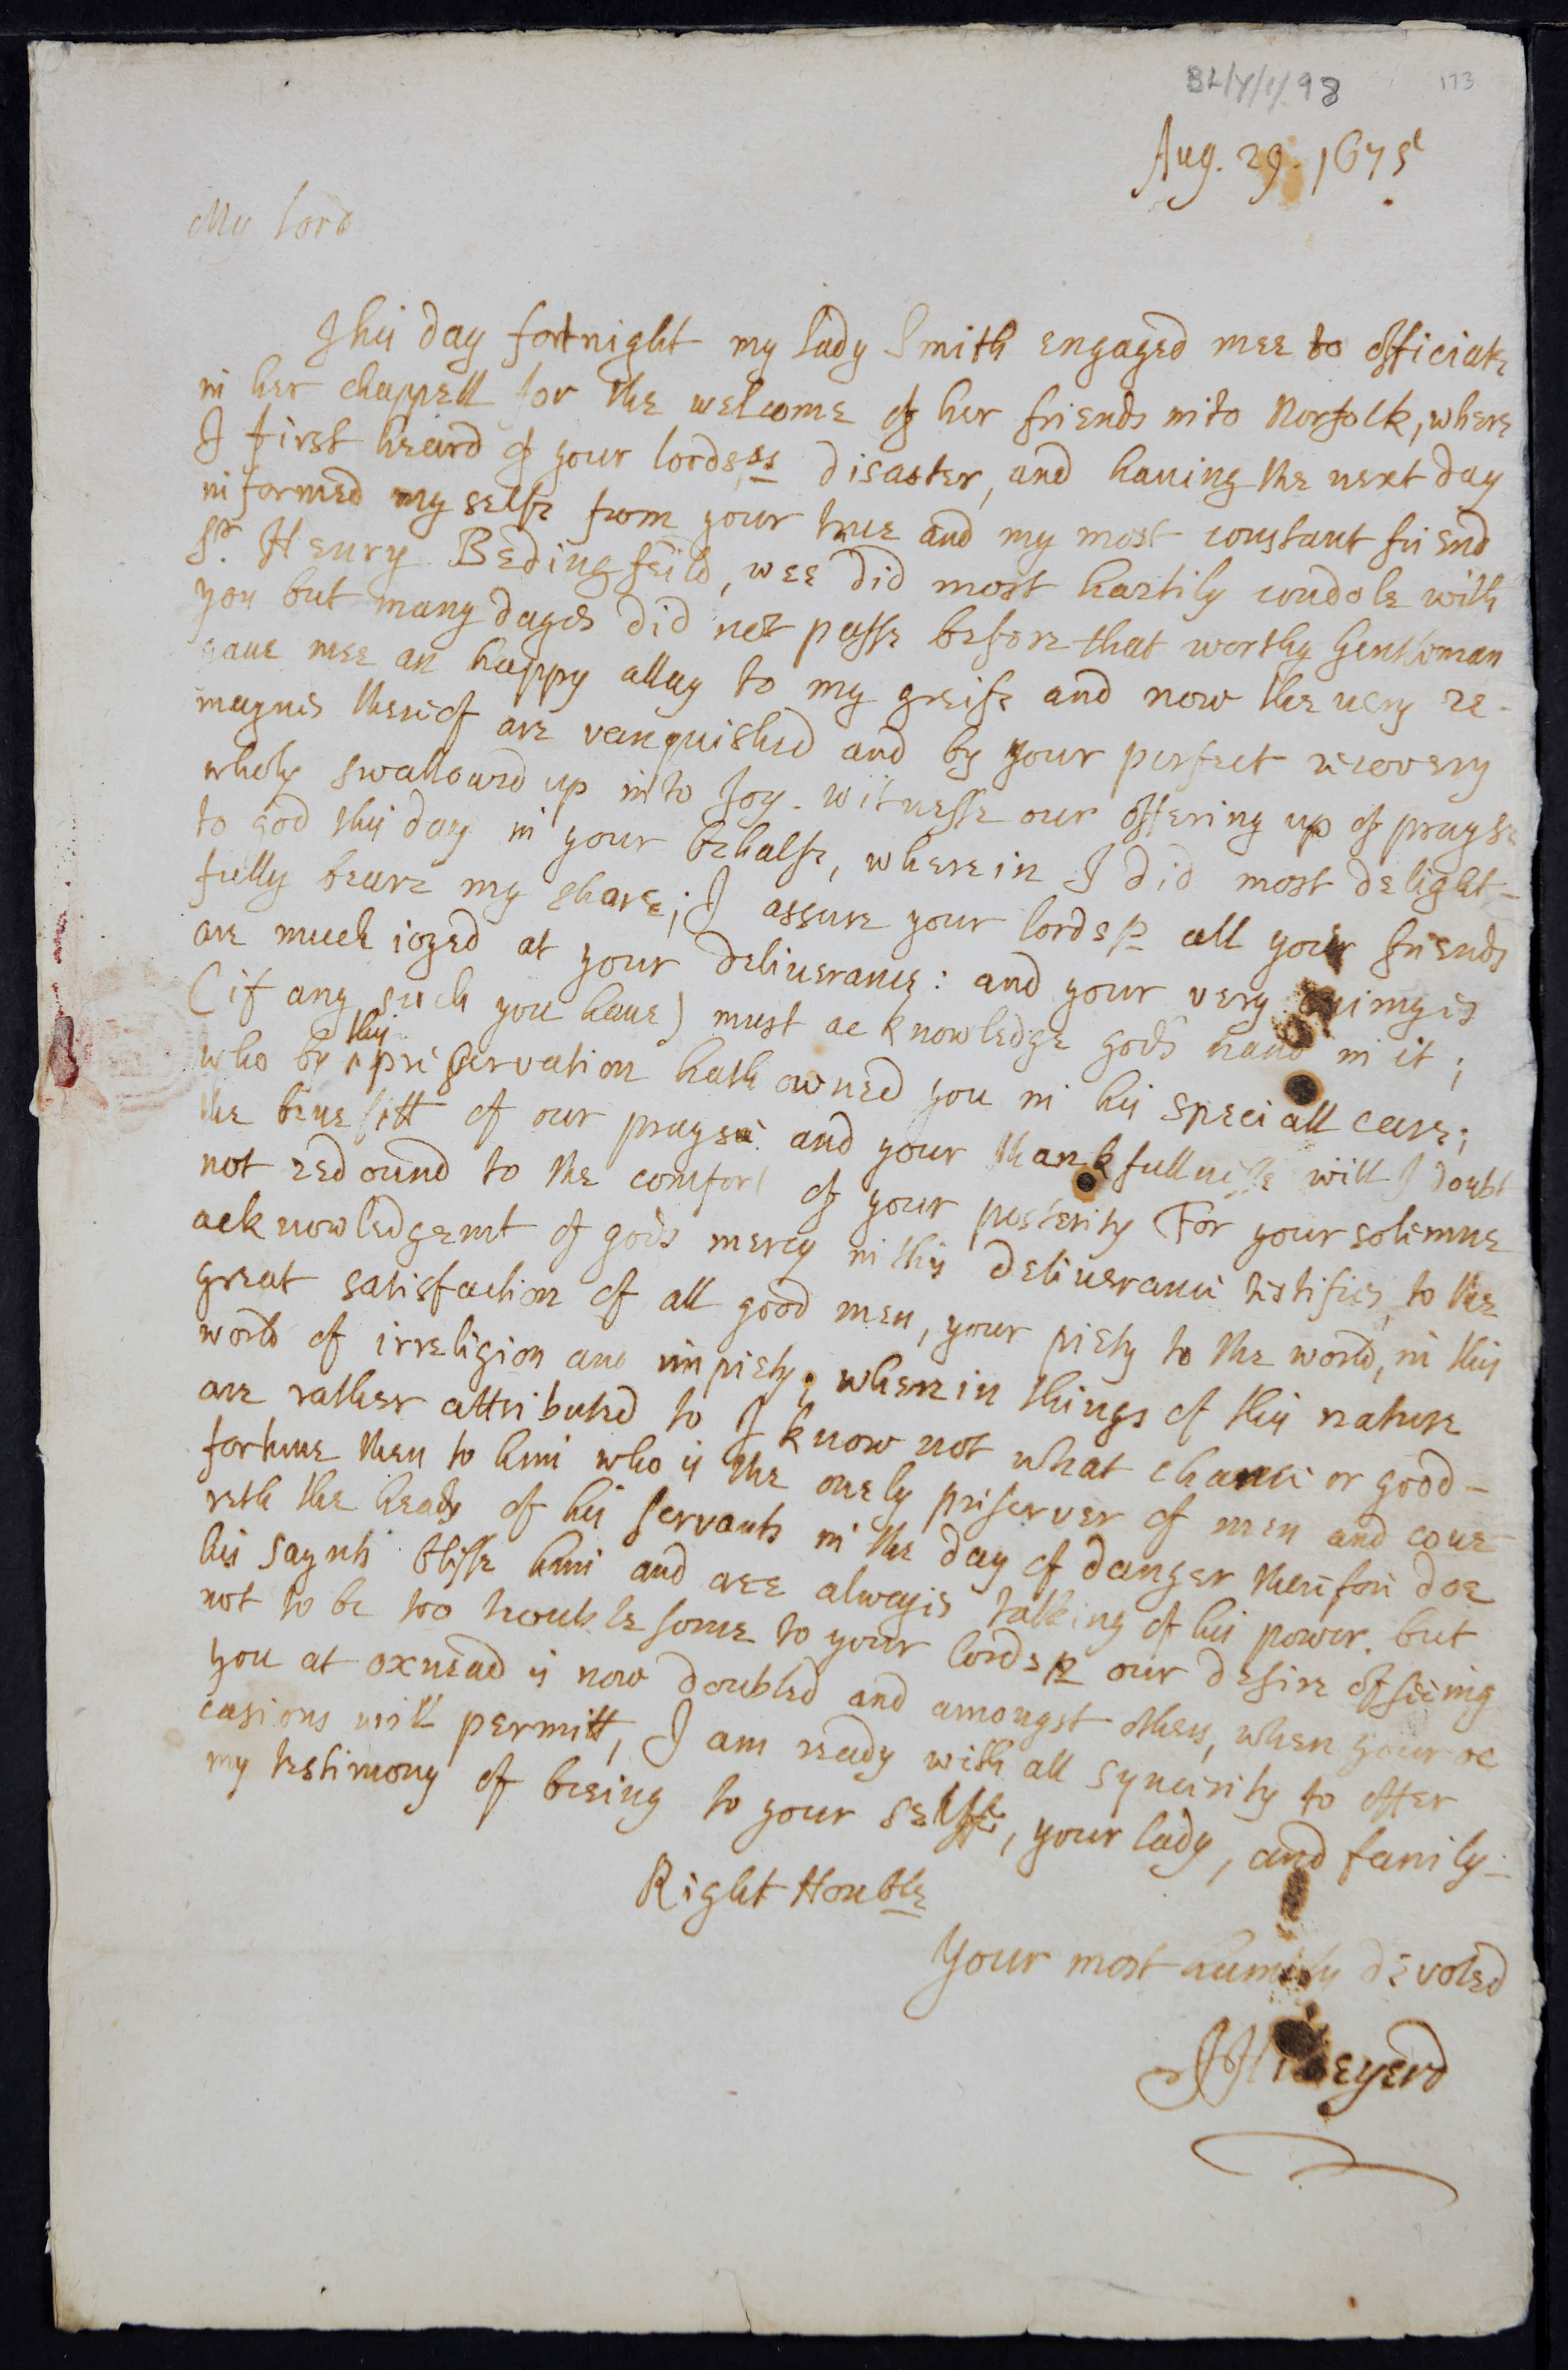 BL/Y/1/98
173
Aug. 29. 1675
My Lord
This day fortnight my Lady Smith engaged mee to officiate
in her chappell for the welcome of her friends into Norfolk, where
I first heard of your lordsps disaster, and hauing the next day
informed my selfe from your true and my most constant friend
Sr. Henry Bedingfeild, wee did most hartily condole with
you but many dayes did not passe before that worthy Gentleman
gaue mee an happy allay to my greife and now the uery re-
maynes thereof are vanquished and by your perfect recovery
wholy swallowed up into Joy. witnesse our offering up of prayse
to god this day in your behalfe, wherein I did most delight-
fully beare my share; I assure your lordsp all your friends
are much ioyed at your deliuerance: and your very enimyes
(if any such you haue) must acknowledge gods hand in it;
who by this preservation hath owned you in his speciall care;
the benefitt of our prayse and your thankfullnesse will I doubt
not redound to the comfort of your posterity For your solemne
acknowledgemt of gods mercy in this deliuerance testifies, to the
great satisfaction of all good men, your piety to the world, in this
world of irreligion and impiety; wherein things of this nature
are rather attributed to I know not what chance or good-
fortune then to him who is the onely preserver of men and coue-
reth the heads of his servants in the day of danger therefore doe
his saynts blesse him and are alwayes talking of his power. but
not to be too troublesome to your lordsp our desire of seeing
you at oxnead is now doubled and amongst others, when your oc
casions will permitt, I am ready with all syncerity to offer
my testimony of beeing to your selfe, your lady, and family-
Right Honble
Your most humbly devoted